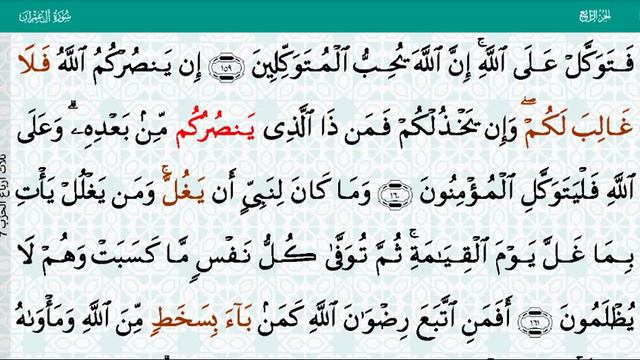 سُورَةُ آلِ عِمْرَانَ
الجزء الرابع
فَتَوَكَّلْ عَلَى ٱللَّهِ ۚ إِنَّ ٱللَّهَ يُحِبُّ ٱلْمُتَوَكِّلِينَ ١٥٩ إِن يَنصُرْكُمُ ٱللَّهُ فَلَا
غَالِبَ لَكُمْ ۖ وَإِن يَخْذُلْكُمْ فَمَن ذَا ٱلَّذِى يَنصُرُكُم مِّنۢ بَعْدِهِۦ ۗ وَعَلَى
ٱللَّهِ فَلْيَتَوَكَّلِ ٱلْمُؤْمِنُونَ ١٦٠ وَمَا كَانَ لِنَبِىٍّ أَن يَغُلَّ ۚ وَمَن يَغْلُلْ يَأْتِ
بِمَا غَلَّ يَوْمَ ٱلْقِيَـٰمَةِ ۚ ثُمَّ تُوَفَّىٰ كُلُّ نَفْسٍ مَّا كَسَبَتْ وَهُمْ لَا
يُظْلَمُونَ ١٦١ أَفَمَنِ ٱتَّبَعَ رِضْوَٰنَ ٱللَّهِ كَمَنۢ بَآءَ بِسَخَطٍ مِّنَ ٱللَّهِ وَمَأْوَىٰهُ
ثلاث أرباع الحزب 7